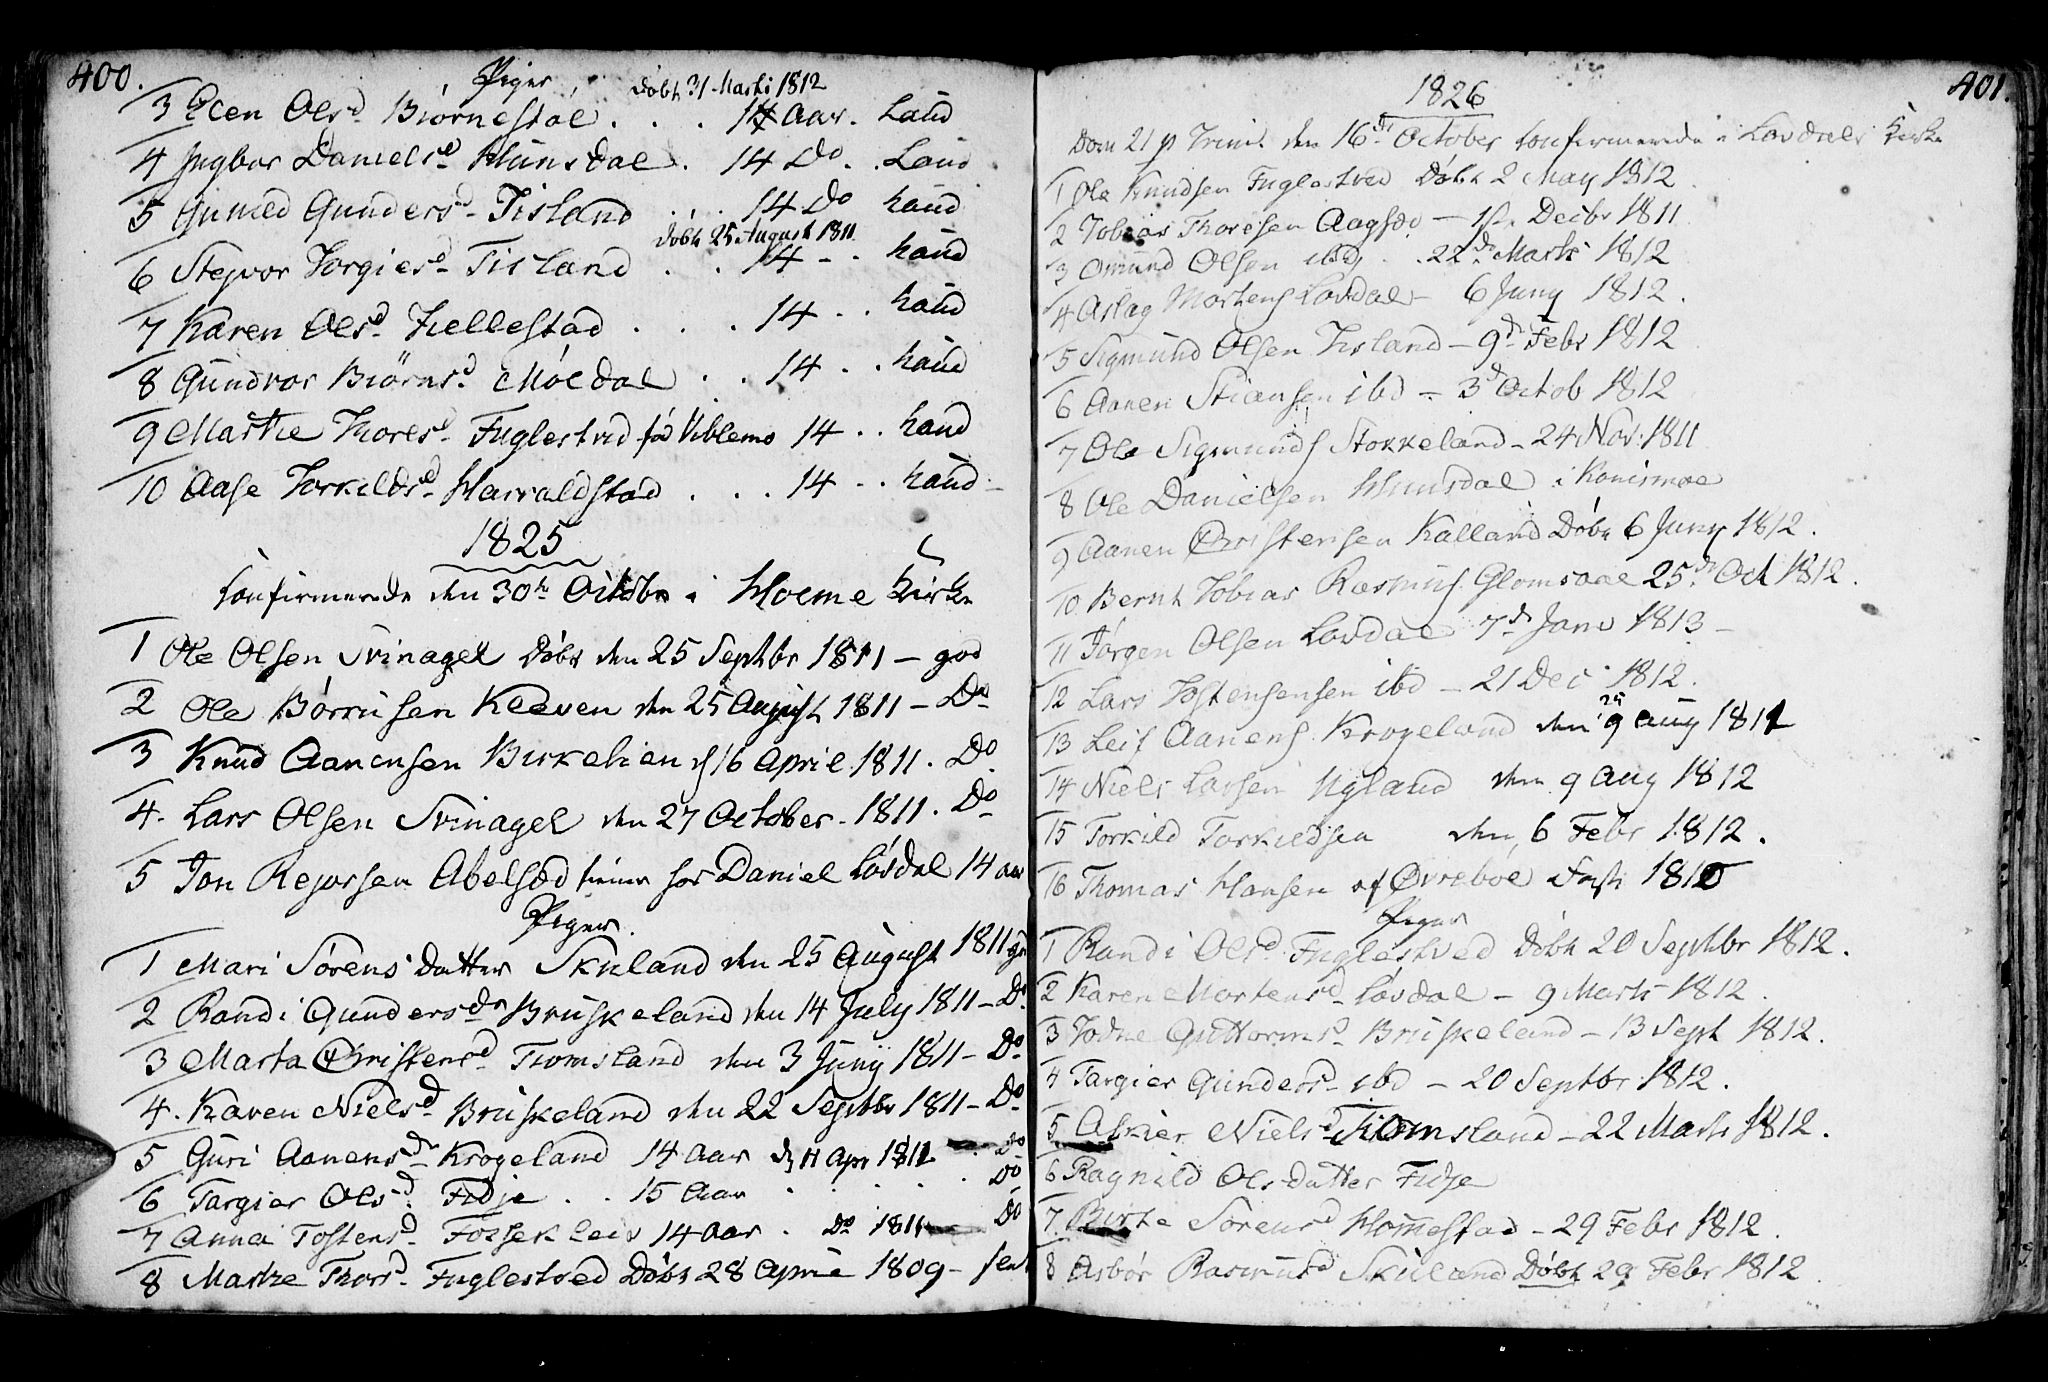 400.
Piger
Døbt 31 Marti 1812
3 Elen Olsd Biørnestøl . . . 14 Aar. Laud
4 Ingbor Danielsd. Hunsdal . 14 Do . Laud
5 Guniled Gundersd. Tisland . . . 14 Do haud
Døbt 25 August 1811
6 Stejvor Torgiersd. Tisland . . 14 - . haud
7 Karen Olsd. Tiellestad . . . 14 . . haud
8 Gundvor Biörnsd. Möldal . . 14 . . haud
9 Marthe Thoresd. Fuglestved Viblemo 14 . . haud
10 Aase Torkildsd. Harraldstad . . . 14 . . haud
1825
Confirmerede den 30te Octobr i Holme Kirke
1 Ole Olsen Svinagel Døbt den 25 Septbr 1811 - god
2 Ole Børrusen Kleven den 25 August 1811 - Do
3 Knud Aanensen Birkelien d 16 April 1811. Do
4. Lars Olsen Svinagel den 27 October. 1811. Do
5 Jon Rejersen Abelsæd tiener hos Daniel Løvdal 14 aar
Piger.
1 Mari Sørens Datter Skuland den 25 August 1811 gd
2 Randi Gundersdr Bruskeland den 14 July 1811 - Do
3 Marta Christensd. Tiomsland den 3 Juny 1811 - Do
4. Karen Nielsd. Bruskeland den 22 Septbr 1811 - Do
5 Guri Aanensdr. Krogeland 14 Aar d 11 Apr 1811 Do
6 Targier Olsd. Fidje . . 15 Aar . . . . Do
7 Anna Tostensd. Fosseklev 14 Aar . Do 1811 Do
8 Marthe Thorsd. Fuglestved Døbt 28 April 1809 -
401.
1826
Dom 21 p Trinit den 16de October confirmerede i Løvdals Kirke
1 Ole Knudsen Fuglestved Døbt 2 May 1812
2 Tobias Thoresen Aagsæd - 1st. Decbr 1811
3 Omund Olsen ibd . . 22de Marti 1812
4 Aslag Mortens Løvdal - 6 Juny 1812.
5 Sigmund Olsen Tisland - 9d Febr 1812
6 Aanen Stiansen ibd - 3d Octob 1812
7 Ole Sigmunds Stokkeland - 24 Nov. 1811
8 Ole Danielsen Hunsdal i Konismoe
9 Aanen Christensen Kalland Døbt 6 Juny 1812.
10 Bernt Tobias Rasmus. Glomsaae 25de Oct 1812.
11 Jörgen Olsen Løvdal 7de Janv 1813 -
12 Lars Tostensensen ibd - 21 Dec 1812.
25
13 Leif Aanens Krogelund den 9 Aug 1811
14 Niels Larsen Ugland den 9 Aug 1812
15 Torkild Torkildsen den 6 Febr 1812.
16 Thomas Hansen af Øvreboe 1810
Piger
1 Randi Olsd Fuglestved Døbt 20 Septbr 1812.
2 Karen Mortensd Løvdal - 9 Marti 1812.
3 Jodne Guttormsd. Bruskeland - 13 Sept 1812.
4 Targier Gundersd. ibd - 20 Septbr 1812.
5 Asgier Nielsd Tiomsland - 22 Marti 1812.
6 Ragnild Ols Datter Fidje
7. Birte Sørensd Hommestad - 29 Febr 1812.
8 Asbör Rasmusd Skuland Døbt 29 Febr 1812.